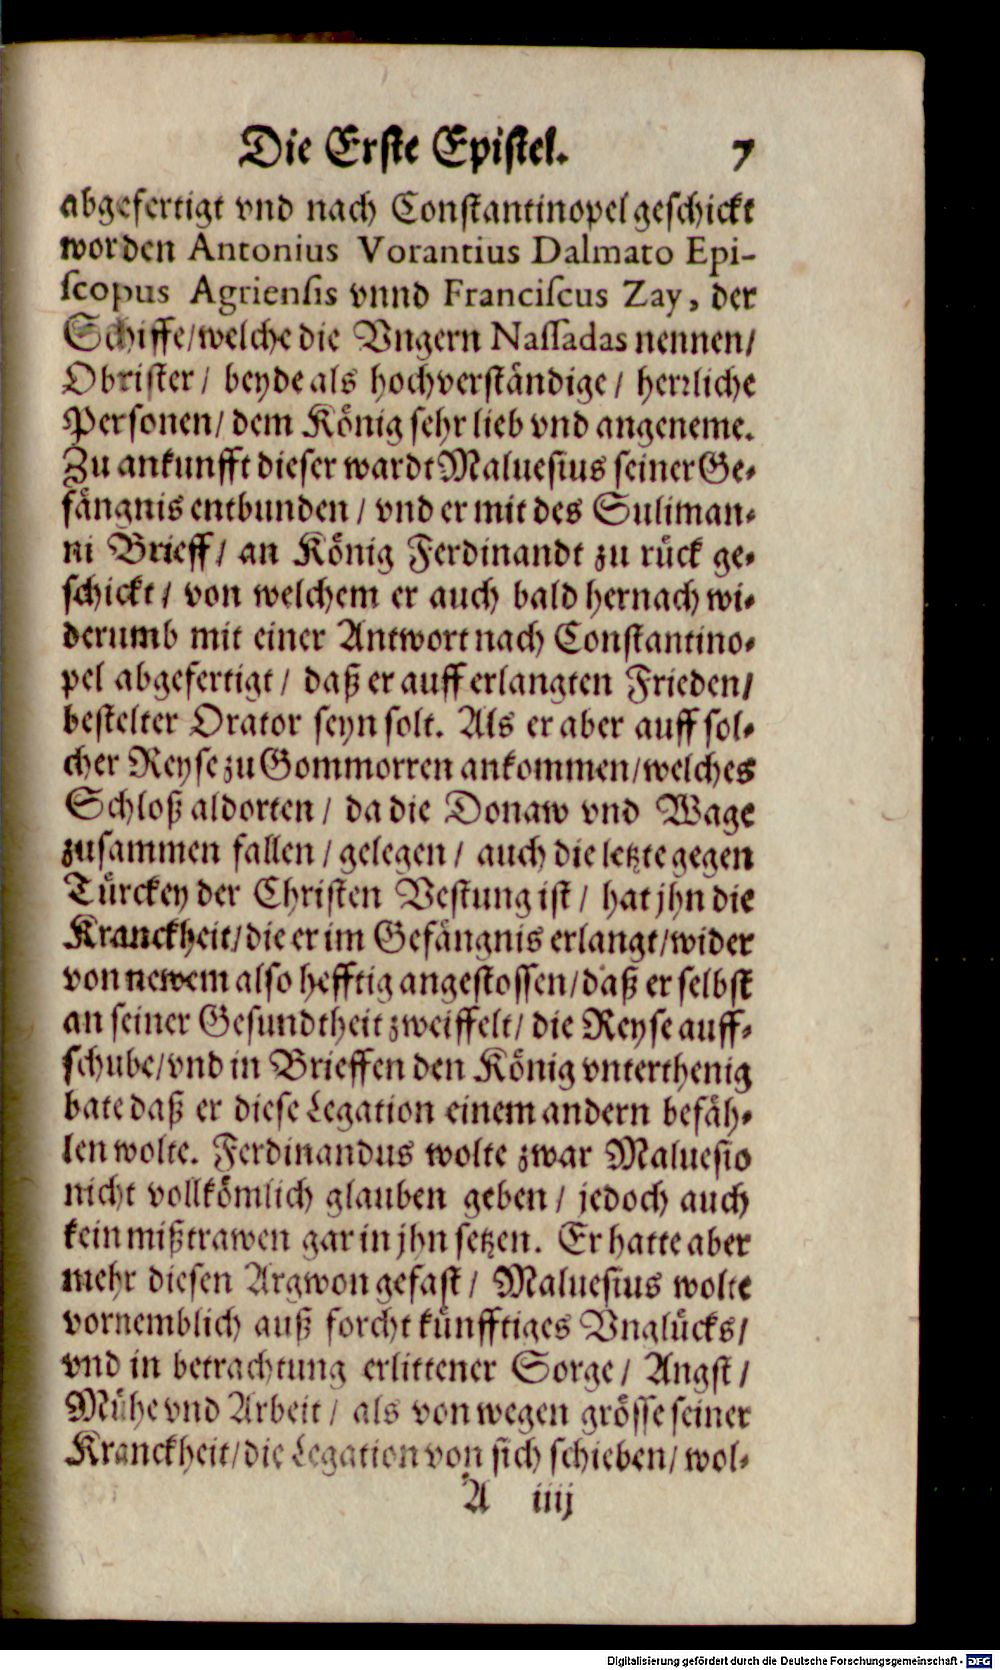 Die Erste Epistel. 7
abgefertigt vnd nach Constantinopel geschickt
worden Antonius Vorantius Dalmato Epi-
scopus Agriensis vnnd Franciscus Zay, der
Schiffe/welche die Vngern Nassadas nennen/
Obrister/ beyde als hochverständige/ herrliche
Personen/ dem König sehr lieb vnd angeneme.
Zu ankunfft dieser wardt Maluesius seiner Ge-
fängnis entbunden/ vnd er mit des Suliman-
ni Brieff/ an König Ferdinandt zu rück ge-
schickt/ von welchem er auch bald hernach wi-
derumb mit einer Antwort nach Constantino-
pel abgefertigt/ daß er auff erlangten Frieden/
bestelter Orator seyn solt. Als er aber auff sol-
cher Reyse zu Gommorren ankommen/welches
Schloß aldorten/ da die Donaw vnd Wage
zusammen fallen/gelegen/ auch die letzte gegen
Türckey der Christen Vestung ist/ hat jhn die
Kranckheit/die er im Gefängnis erlangt/wider
von newem also hefftig angestossen/daß er selbst
an seiner Gesundtheit zweiffelt/ die Reyse auff-
schube/vnd in Brieffen den König vnterthenig
bate daß er diese Legation einem andern befäh-
len wolte. Ferdinandus wolte zwar Maluesio
nicht vollkömlich glauben geben/ jedoch auch
kein mißtrawen gar in jhn setzen. Er hatte aber
mehr diesen Argwon gefast/ Maluesius wolte
vornemblich auß forcht künfftiges Vnglücks/
vnd in betrachtung erlittener Sorge/ Angst/
Mühe vnd Arbeit/ als von wegen grösse seiner
Kranckheit/die Legation von sich schieben/ wol-
A iiij
Digitalisierung gefördert durch die Deutsche Forschungsgemeinschaft - DFG